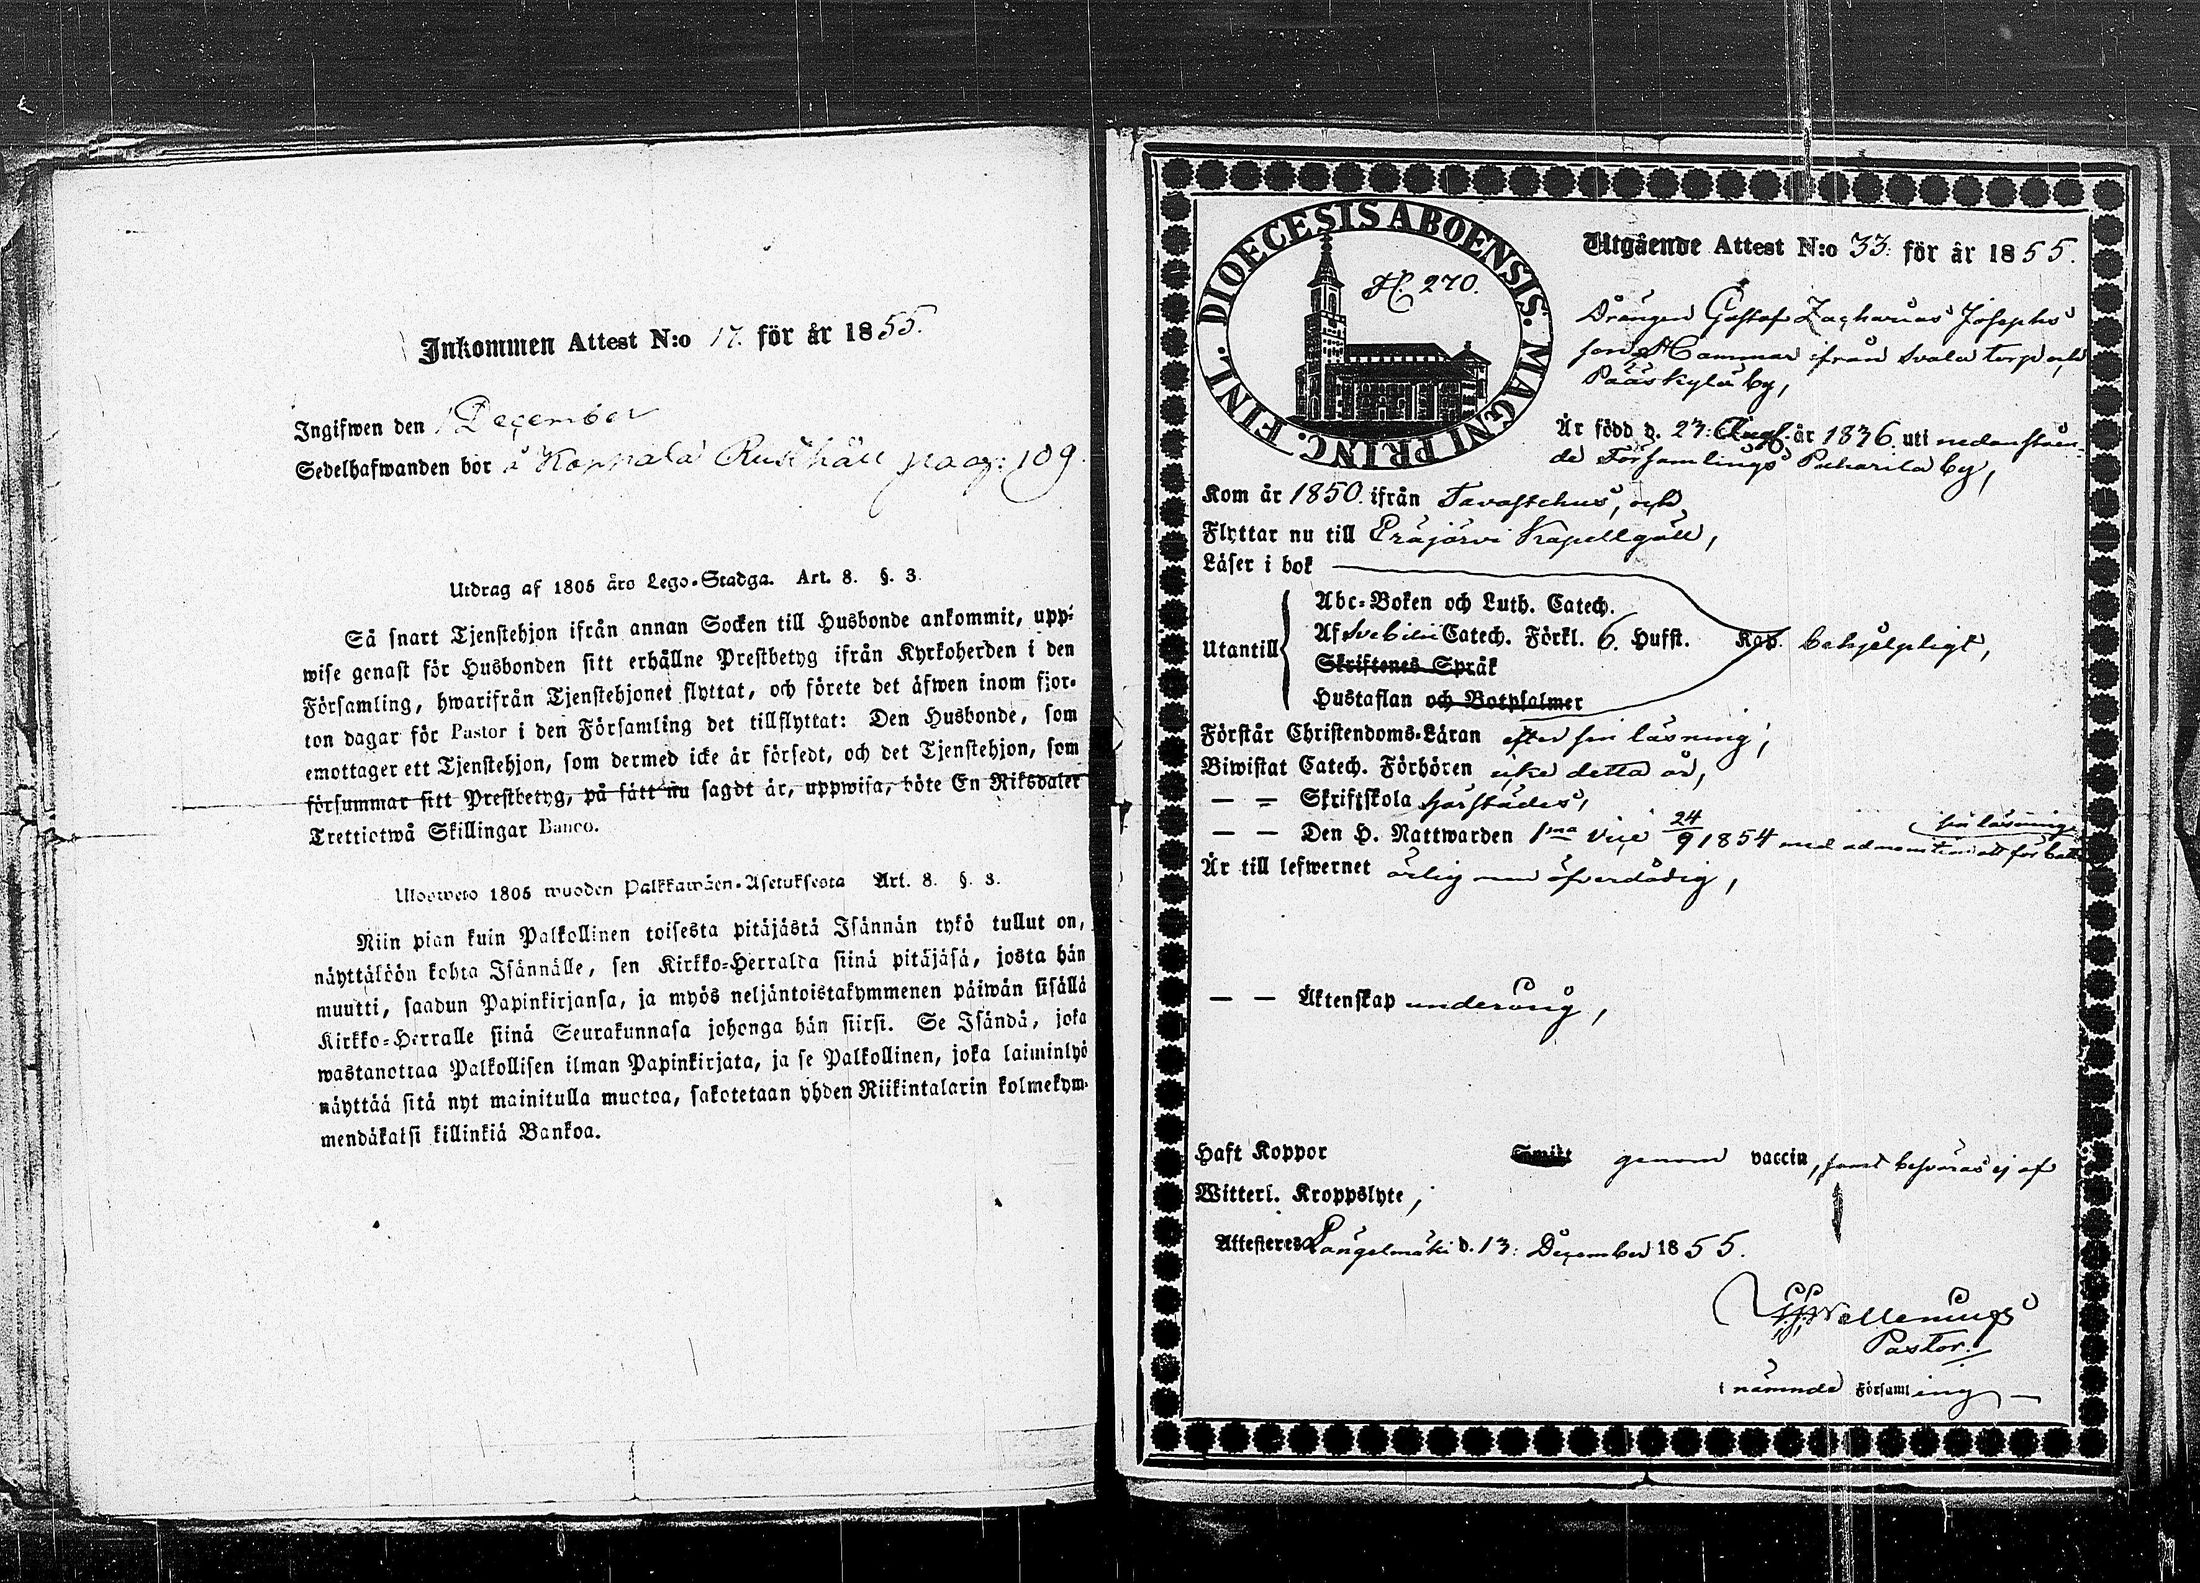 Inkommen Attest N:o 17. för år 1855.
Ingifwen den December
Sedelhafwanden bor å Koppala Rusthåll pag: 109.
Utdrag af 1805 års Lego-Stadga. Art. 8. §. 3.
Så snart Tjenstehjon ifrån annan Socken till Husbonde ankommit, upp-
wise genast för Husbonden sitt erhållne Prestbetyg ifrån Kyrkoherden i den
Församling, hwarifrån Tjenstehjonet flyttat, och förete det äfwen inom fjor-
ton dagar för Pastor i den Församling det tillflyttat: Den Husbonde, som
emottager ett Tjenstehjon, som dermed icke är försedt, och det Tjenstehjon, som
försummar sitt Prestbetyg, på sätt nu sagdt är, uppwisa, böte En Riksdaler
Trettiotwå Skillingar Banco.
Ulosweto 1805 wuoden Palkkawäen-Asetuksesta Art. 8. §. 3.
Niin pian kuin Palkollinen toisesta pitäjästä Isännän tykö tullut on,
näyttäköön kohta Isännälle, sen Kirkko-Herralta siinä pitäjäsä, josta hän
muutti, saadun Papinkirjansa, ja myös neljäntoistakymmenen päiwän sisällä
Kirkko-Herralle siinä Seurakunnasa johonga hän siirsi. Se Isändä, joka
wastanottaa Palkollisen ilman Papinkirjata, ja se Palkollinen, joka laiminlyö
näyttää sitä nyt mainitulla muotoa, sakotetaan yhden Riikintalarin kolmekym-
mendäkaksi killinkiä Bankoa.
DIOECESIS ABOENSIS. MAGNI PRINC. FINL.
H. 270.
Utgående Attest N:o 33. för år 1855.
Drängen Gustaf Zacharias Josephs
son Hammar ifrån Svala torp och
Pääskylä by,
Är född d. 27: Aug. år 1836. uti nedanståen-
de Församlings Puharila by,
Kom år 1850. ifrån Tavastehus, och
Flyttar nu till Eräjärvi Kapellgäll,
Läser i bok
Utantill
Abc-Boken och Luth. Catech.
Af Svebilii Catech. Förkl. 6. Hufst. Kap. behjelpligt,
Skriftenes Språk
Hustaflan och Botpsalmer
Förstår Christendoms-Läran efter sin läsning,
Biwistat Catech. Förhören icke detta år,
— — Skriftskola härstädes,
— — Den H. Nattwarden 1ma vice 24/9 1854 med admonition att förbättra
sin läsning
Är till lefwernet ärlig men öfverdådig,
— — Äktenskap underårig,
Haft Koppor genom vaccin, samt besväras ej af
Witterl. Kroppslyte,
Attesteres Längelmäki d. 13: December 1855.
Wallenius
Pastor.
i nämnde Församling —